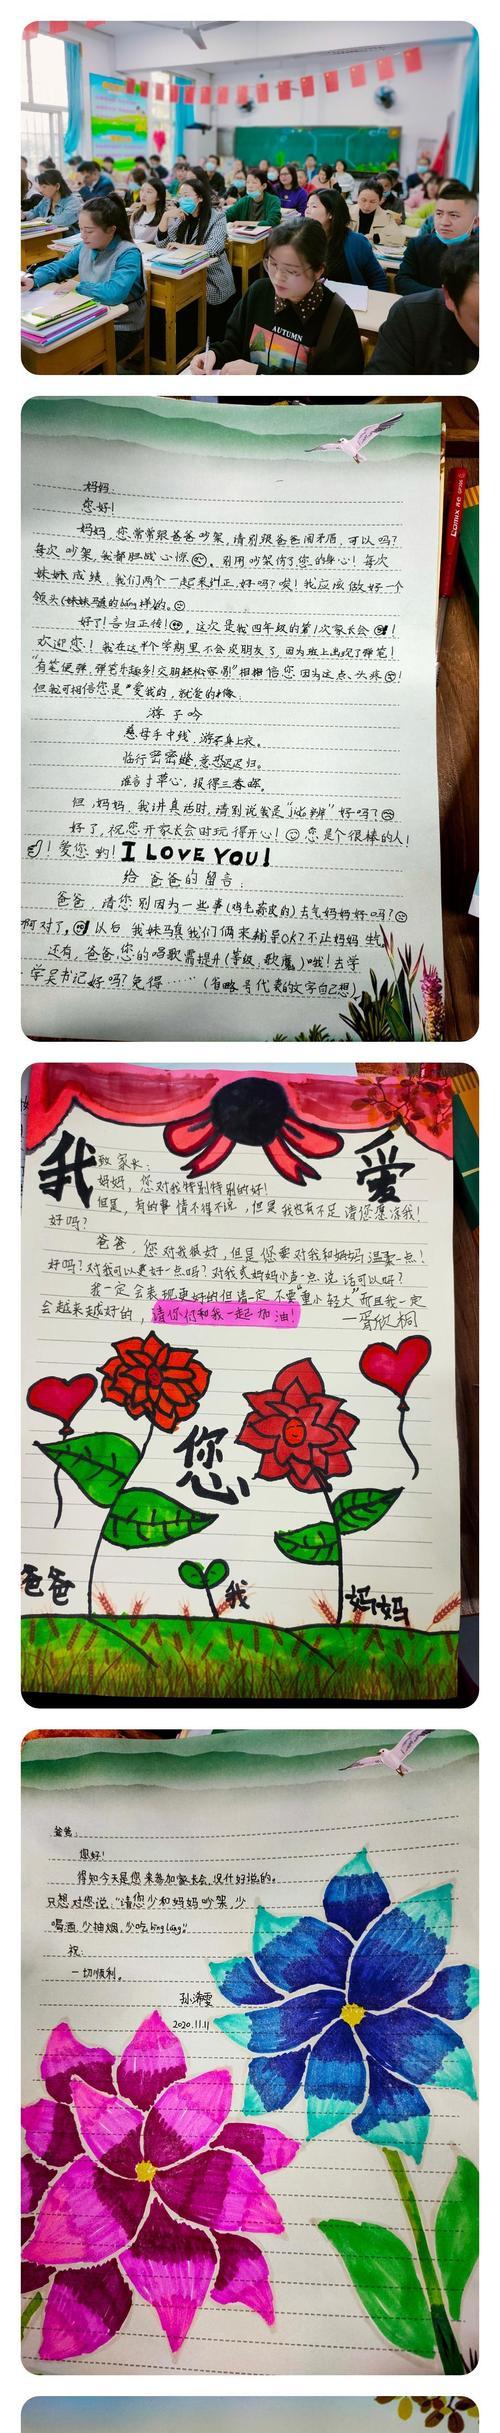 AUTUMN
妈妈:
您好!
妈妈,您常常跟爸爸吵架,请别跟爸爸闹矛盾,可以吗?
每次吵架,我都胆战心惊,别用吵架伤了您的身心!每次
妹妹成绩,我们两个一起来纠正,好吗?唉!我应该做好一个
领头(妹妹马虎的bǎng样)的。
好了!言归正传!这次是我四年级的第1次家长会!
欢迎您!我在这半个学期里不会交朋友了,因为班上出现了弹笔!
"有笔便弹,弹笔乐趣多!交朋轻松容易"相相信您因为这点、头疼!
但我可相信您是"爱我的,就爱的
游子吟
慈母手中线,游子身上衣。
临行密密缝,意恐迟迟归。
谁言寸草心,报得三春晖。
但,妈妈,我讲真话时,请别说我是"jiǎo辨"好吗?
好了,祝您开家长会时玩得开心!您是个很棒的人!
!爱您哟!I LOVE YOU!
给爸爸的留言:
爸爸,请您别因为一些事(鸡毛蒜皮的)去气妈妈好吗?
啊对了,以后我妹马虎我们俩来辅导OK?不让妈妈生气
还有,爸爸,您的唱歌需提升(等级:歌魔)哦!去学
学吴书记好吗?免得……(省略号代表的文字自己想)
Comix
我
爱
致家长:
妈妈,您对我特别特别的好!
但是,有的事情不得不说,但是我也有不足请您原谅我!
好吗?
爸爸,您对我很好,但是您要对我和妈妈温柔一点!
好吗?对我可以更好一点吗?对我或妈妈小声一点说话可以吗?
我一定会表现更好的但请一定不要"重小轻大"而且我一定
会越来越好的,请你们和我一起加油!
—胥欣桐
您
爸爸
我
妈妈
爸爸:
您好!
得知今天是您来参加家长会,没什好说的。
只想对您说:"请您少和妈妈吵架,少
喝酒,少抽烟,少吃bīng láng"。
祝:
一切顺利。
2020.11.11